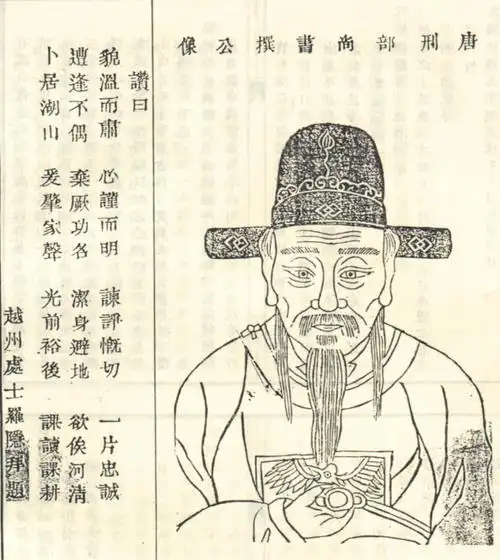 唐刑部尚書撰公像
讚曰
貌溫而肅　心謹而明　諫諍慨切　一片忠誠
遭逢不偶　棄厥功名　潔身避地　欲俟河清
卜居湖山　爰肇家聲　光前裕後　課讀課耕
越州處士羅隱拜題